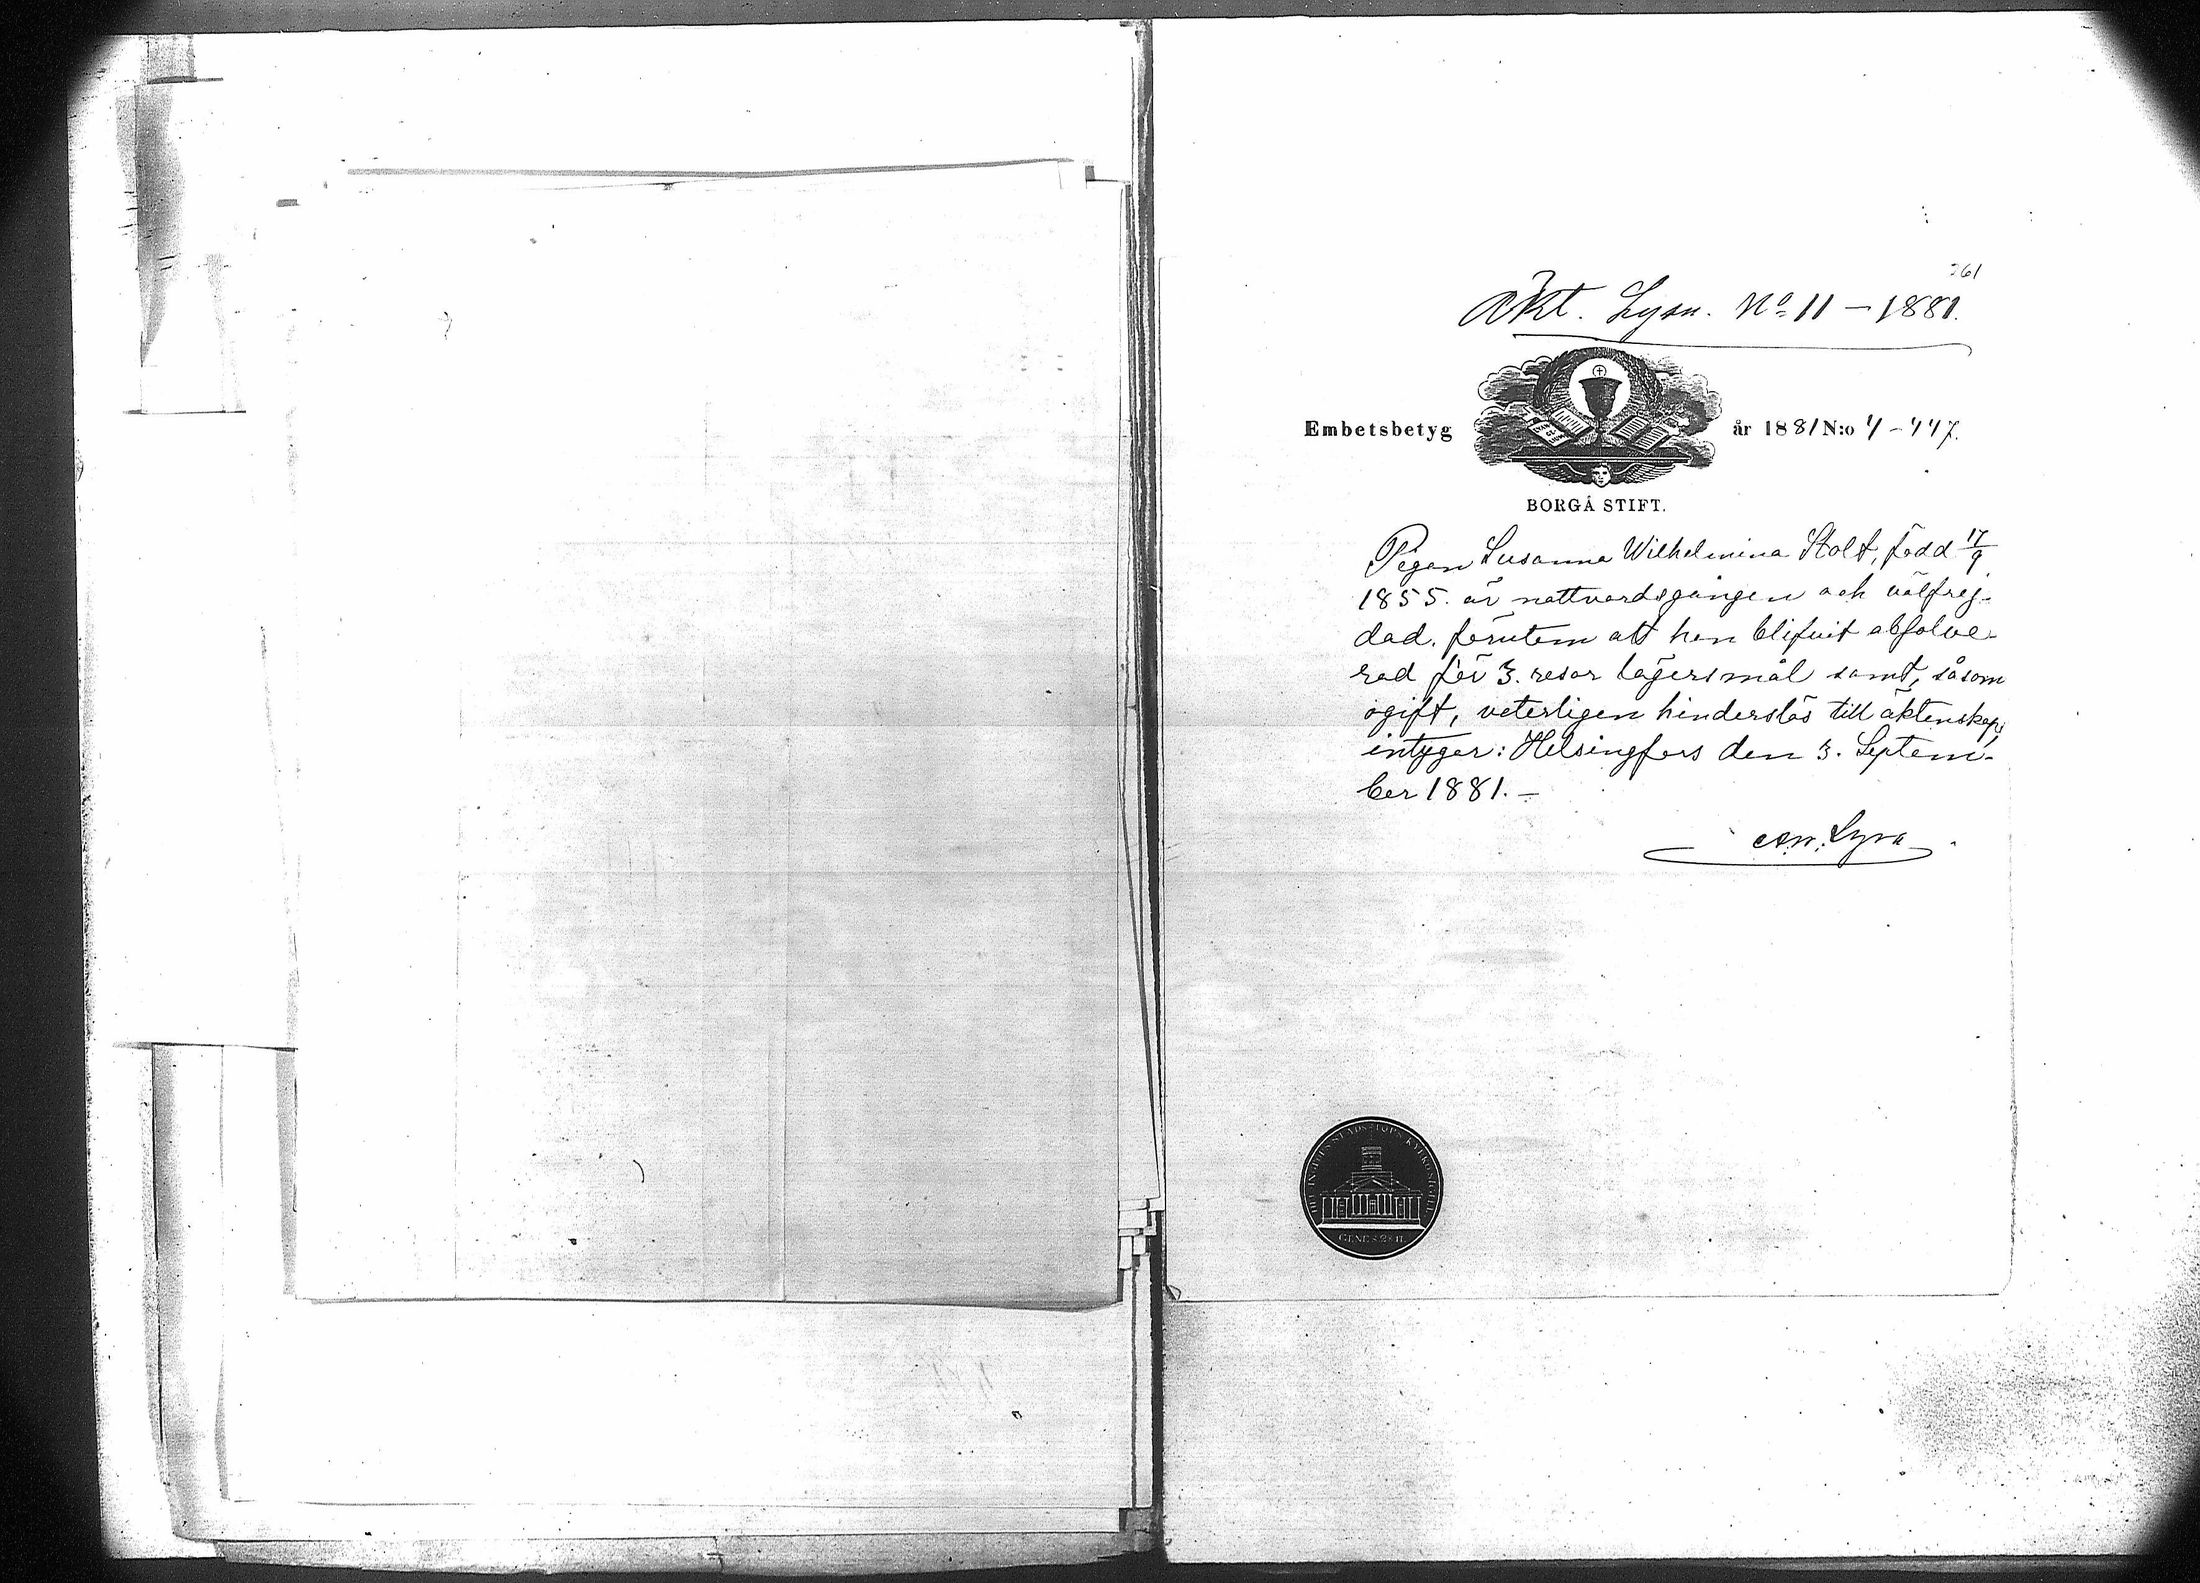 261
Äkt. Lysn. No 11 – 1881.
Embetsbetyg år 1881 N:o 4–447.
BORGÅ STIFT.
Pigan Susanna Wilhelmina Stolt, född 17/9
1855. är nattvardsgången och välfrej-
dad, förutom att hon blifvit absolve-
rad för 3. resor lägersmål samt, såsom
ogift, veterligen hinderslös till äktenskap;
intygar: Helsingfors den 3. Septem-
ber 1881. –
Lyra
GENES. 28